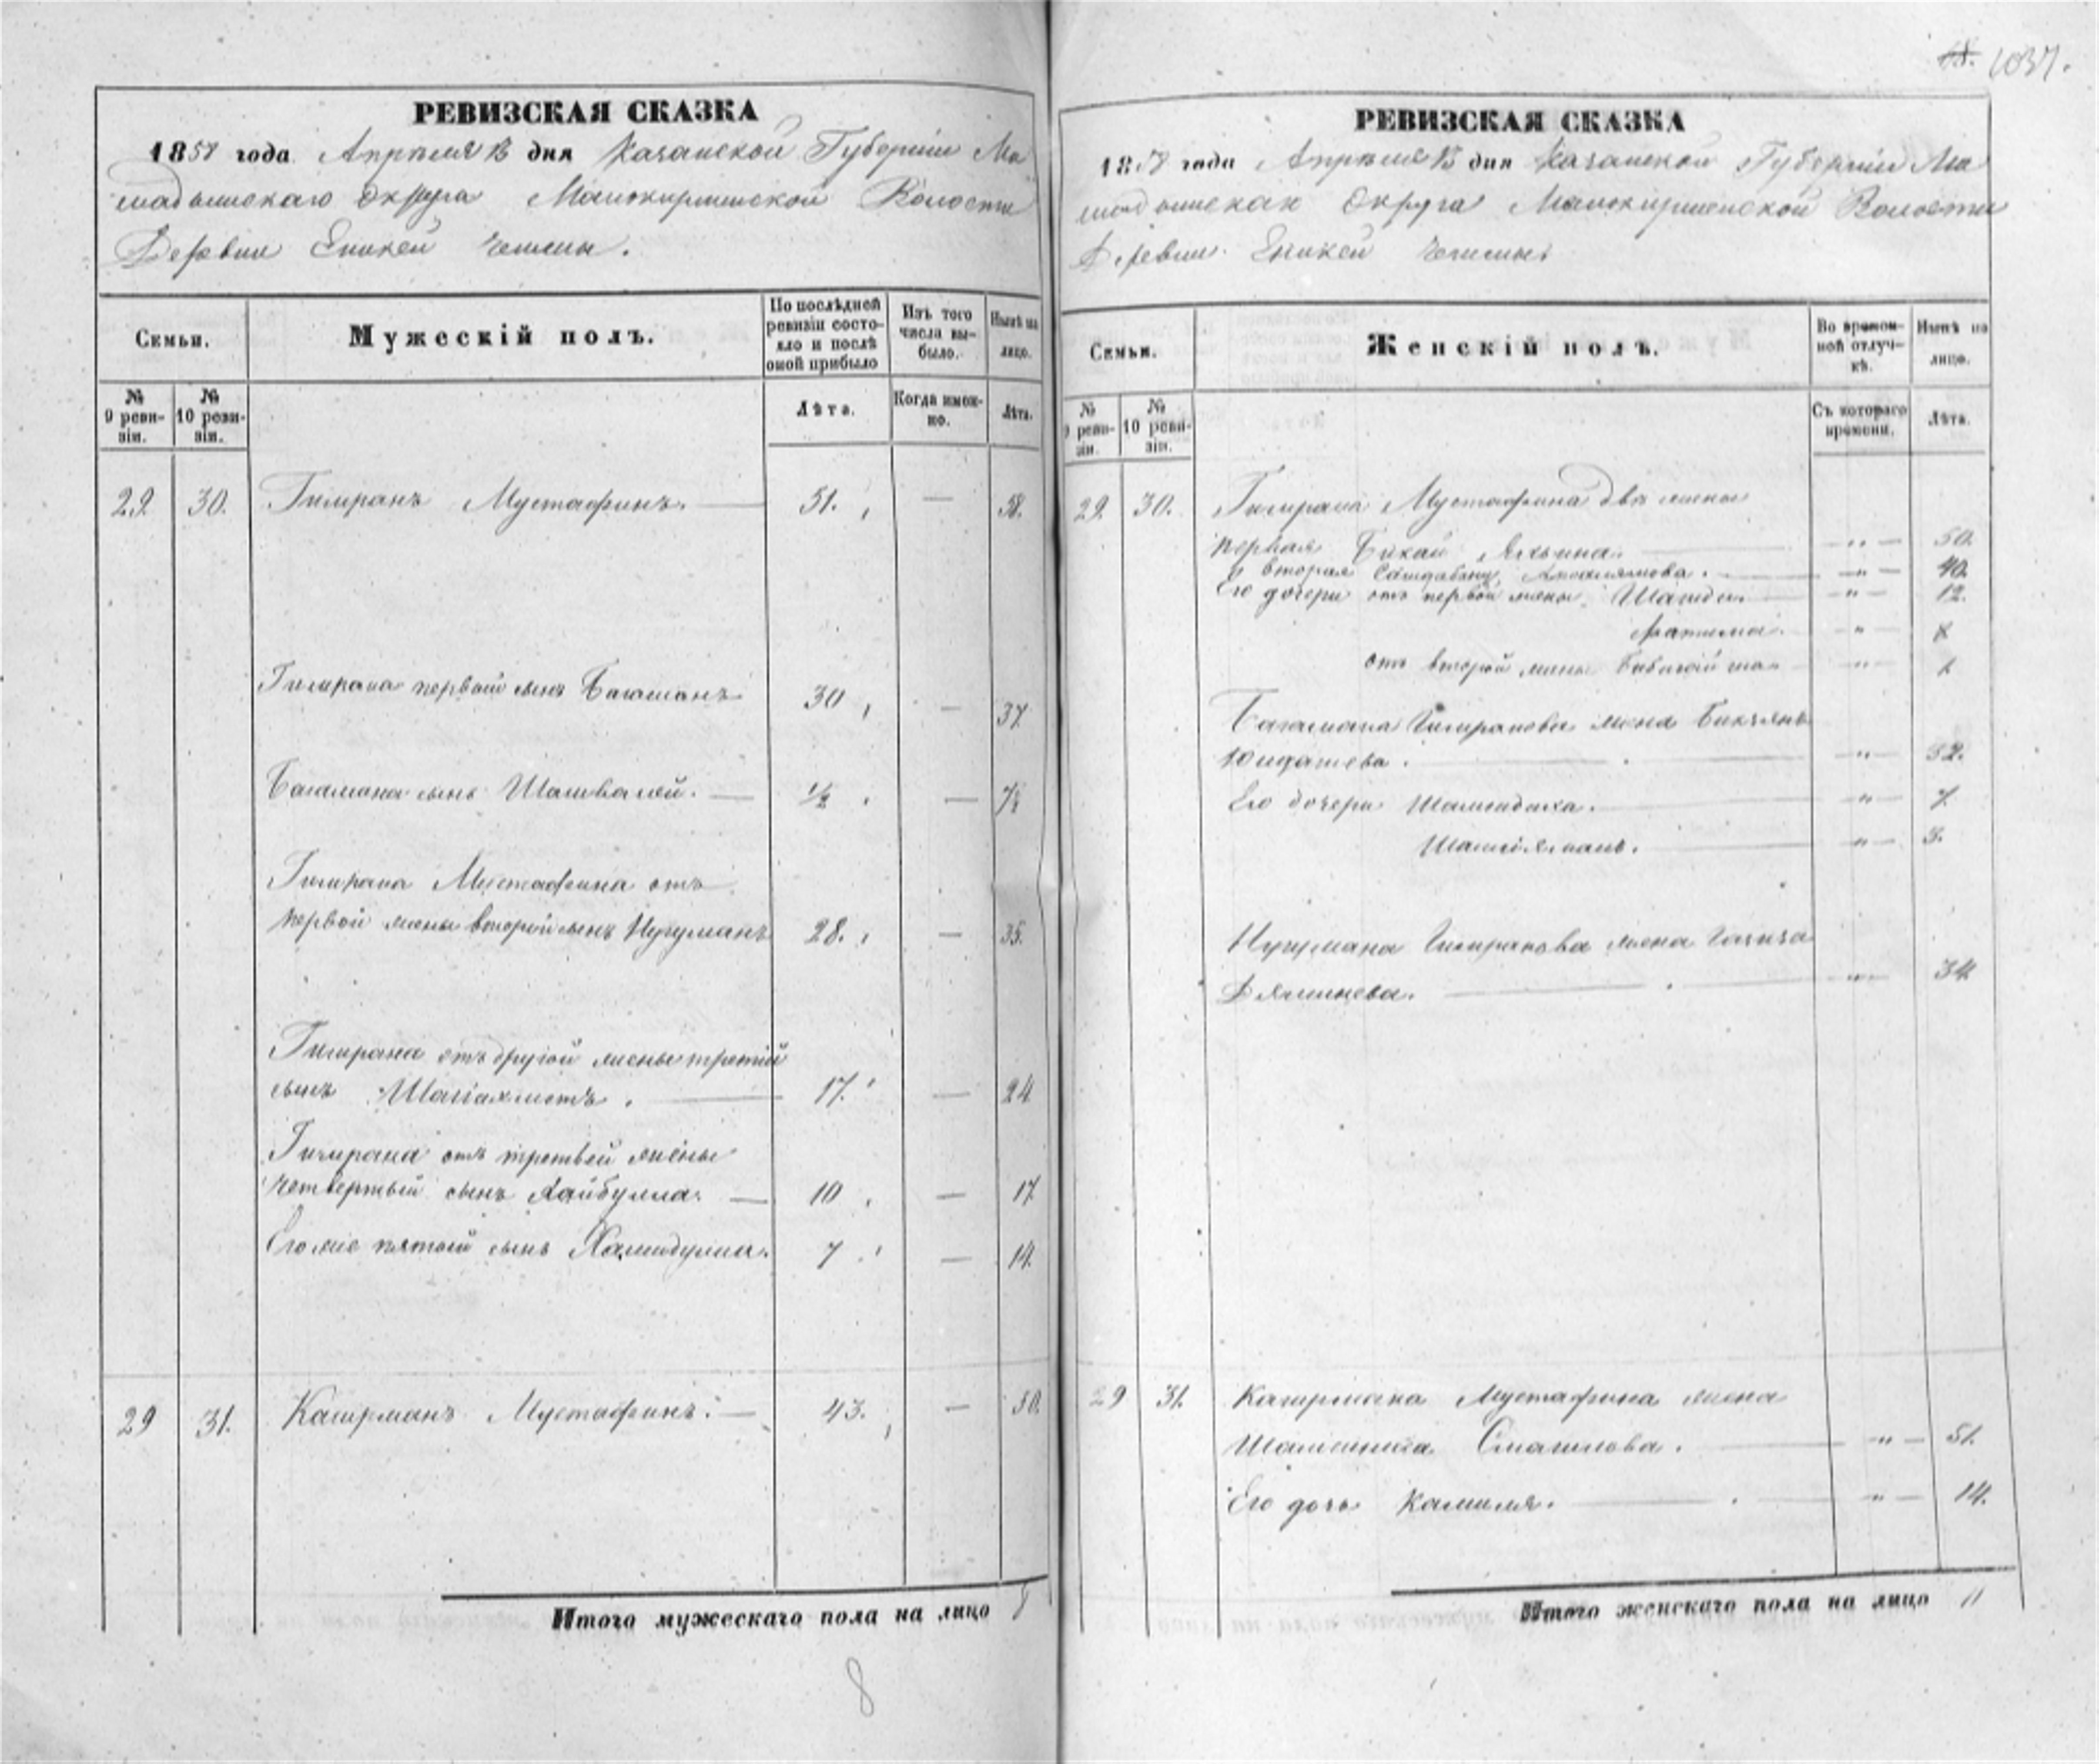 1037.
РЕВИЗСКАЯ СКАЗКА
1858 года Апрѣля 13 дня Казанской Губерніи Ма
мадышскаго округа Малокирменской Волости
Деревни Еникей Чишмы.
Семьи.
Мужескій полъ.
По послѣдней ревизіи состояло и послѣ оной прибыло
Изъ того числа выбыло.
Нынѣ на лицо.
№ 9 ревизіи.
№ 10 ревизіи.
Лѣта.
Когда именно.
Лѣта.
29. 30. Гимранъ Мустафинъ. — 51. — 58.
Гимрана первой сынъ Багаманъ 30 — 37.
Багамана сынъ Шагивалей. — 1/2 — 7 1/2
Гимрана Мустафина отъ
первой жены второй сынъ Нугуманъ 28. — 35.
Гимрана отъ другой жены третій
сынъ Шагіахметъ. 17. — 24
Гимрана отъ третьей жены
четвертый сынъ Хайбулла. — 10 — 17
Его же пятый сынъ Хамидулла. 7 — 14.
29 31. Кагирманъ Мустафинъ. — 43. — 50.
Итого мужескаго пола на лицо 8
8
РЕВИЗСКАЯ СКАЗКА
1858 года Апрѣля 13 дня Казанской Губерніи Ма
мадышскаго Округа Малокирменской Волости
Деревни Еникей Чишмы
Семьи.
Женскій полъ.
Во временной отлучкѣ.
Нынѣ на лицо.
№ 9 ревизіи.
№ 10 ревизіи.
Съ котораго времени.
Лѣта.
29. 30. Гимрана Мустафина двѣ жены
первая Бикай — " — 50.
вторая — " — 40.
Его дочери отъ первой жены — " — 12.
Фатима. — " — 8
отъ второй жены — " — 1
Багамана Гимранова жена Бикъянъ
Юлдашева. — " — 32.
Его дочери — " — 7.
— " — 3.
Нугумана Гимранова жена Газиза
— " — 34
29 31. Кагирмана Мустафина жена
Смагилова. — " — 51.
Его дочь Камиля. — " — 14.
Итого женскаго пола на лицо 11